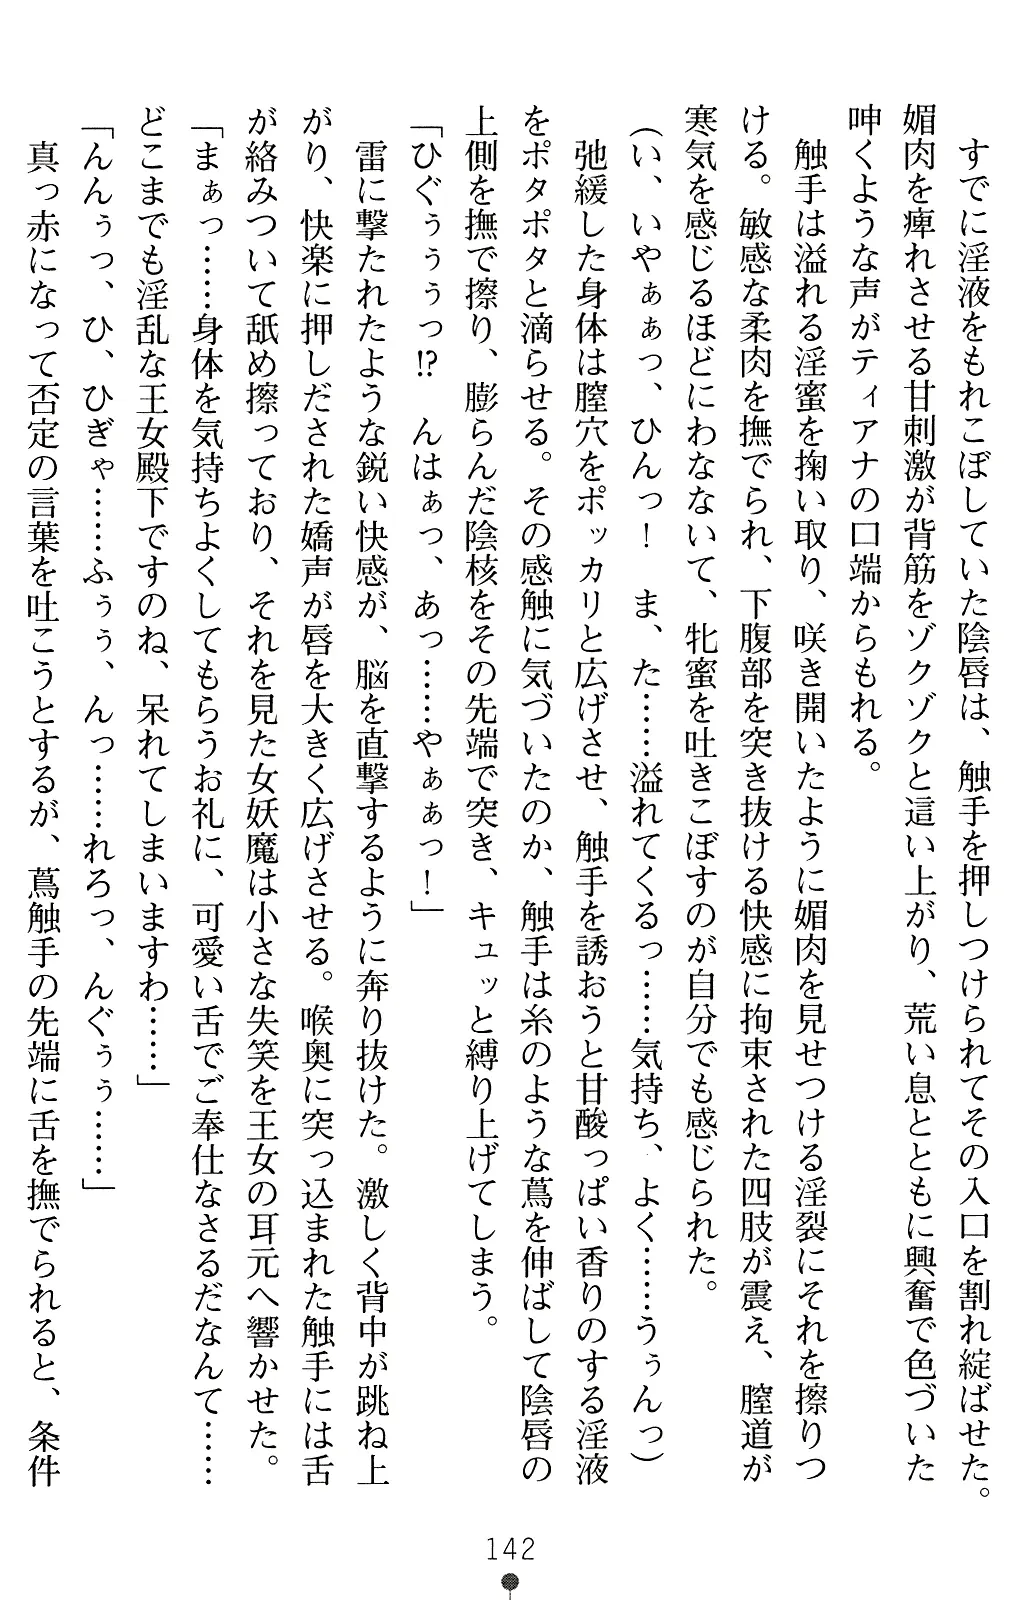 すでに淫液をもれこぼしていた陰唇は、触手を押しつけられてその入口を割れ綻ばせた。
媚肉を痺れさせる甘刺激が背筋をゾクゾクと這い上がり、荒い息とともに興奮で色づいた
呻くような声がティアナの口端からもれる。
触手は溢れる淫蜜を掬い取り、咲き開いたように媚肉を見せつける淫裂にそれを擦りつ
ける。敏感な柔肉を撫でられ、下腹部を突き抜ける快感に拘束された四肢が震え、膣道が
寒気を感じるほどにわなないて、牝蜜を吐きこぼすのが自分でも感じられた。
(い、いやぁぁっ、ひんっ！　ま、た……溢れてくるっ……気持ち、よく……うぅんっ)
弛緩した身体は膣穴をポッカリと広げさせ、触手を誘おうと甘酸っぱい香りのする淫液
をポタポタと滴らせる。その感触に気づいたのか、触手は糸のような蔦を伸ばして陰唇の
上側を撫で擦り、膨らんだ陰核をその先端で突き、キュッと縛り上げてしまう。
「ひぐぅぅぅっ!?　んはぁっ、あっ……やぁぁっ！」
雷に撃たれたような鋭い快感が、脳を直撃するように奔り抜けた。激しく背中が跳ね上
がり、快楽に押しだされた嬌声が唇を大きく広げさせる。喉奥に突っ込まれた触手には舌
が絡みついて舐め擦っており、それを見た女妖魔は小さな失笑を王女の耳元へ響かせた。
「まぁっ……身体を気持ちよくしてもらうお礼に、可愛い舌でご奉仕なさるだなんて……
どこまでも淫乱な王女殿下ですのね、呆れてしまいますわ……」
「んんぅっ、ひ、ひぎゃ……ふぅぅ、んっ……れろっ、んぐぅぅ……」
真っ赤になって否定の言葉を吐こうとするが、蔦触手の先端に舌を撫でられると、条件
142